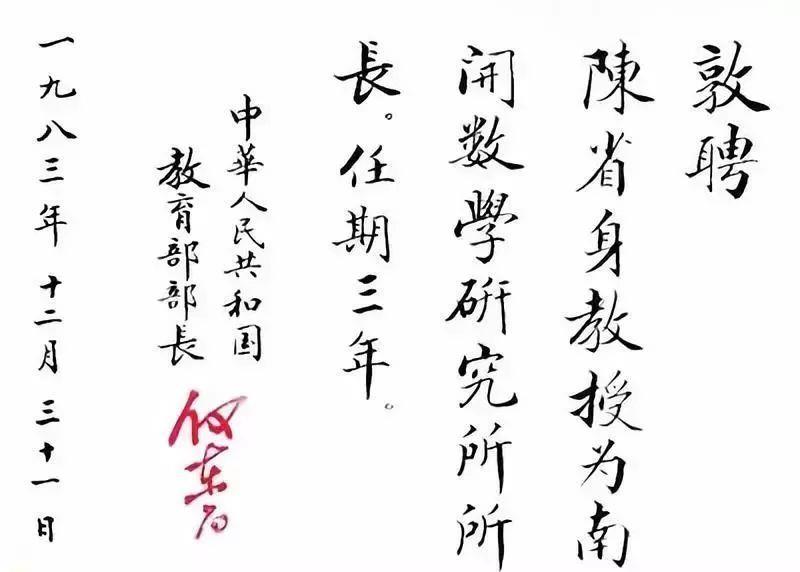 敦聘
陳省身教授为南
開数學研究所所
長。任期三年。
中華人民共和国
教育部部長
何东昌
一九八三年十二月三十一日